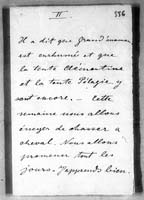 II
556
Il a dit que grand'maman
est enrhumée et que
la tante Clémentine
et la tante Pélagie, y
sont encore. — Cette
semaine nous allons
essayer de chasser à
cheval. Nous allons
promener tout les
jours. J'apprends bien.